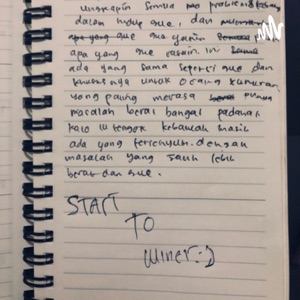 ungkapin semua problem
dalam hidup gue, dan
yang gue gue yakin
apa yang gue rasain. ini
ada yang sama seperti gue dan
khususnya untuk orang
yang paling merasa punya
masalah berat banget padahal
kalo lu tengok kebawah masih
ada yang tersenyum dengan
masalah yang jauh lebih
berat dari gue.
START
TO
Winer:)